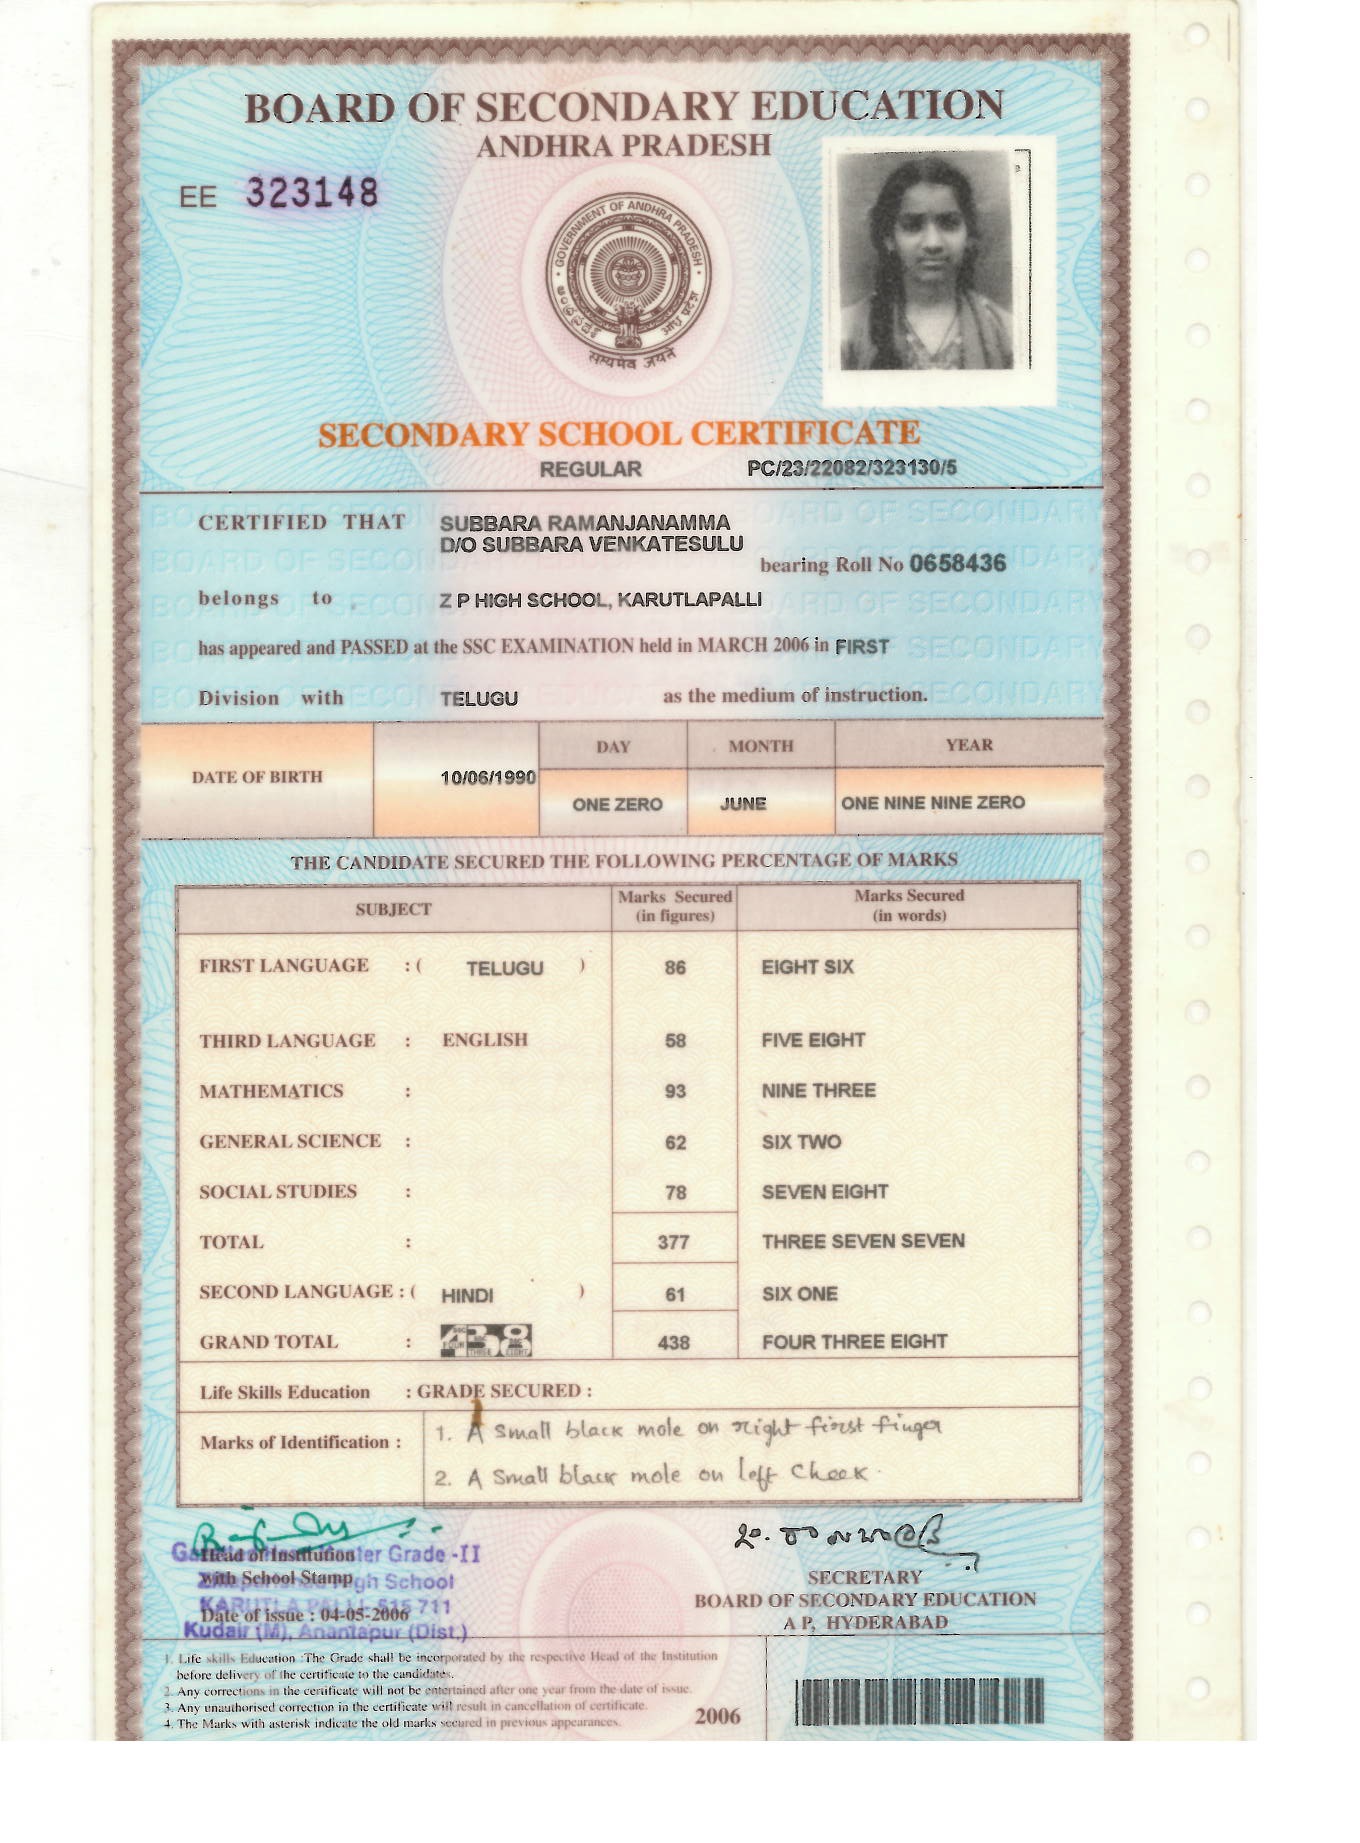 BOARD OF SECONDARY EDUCATION
ANDHRA PRADESH
EE 323148
GOVERNMENT OF ANDHRA PRADESH
सत्यमेव जयते
SECONDARY SCHOOL CERTIFICATE
REGULAR PC/23/22082/323130/5
CERTIFIED THAT SUBBARA RAMANJANAMMA
D/O SUBBARA VENKATESULU
bearing Roll No 0658436
belongs to Z P HIGH SCHOOL, KARUTLAPALLI
has appeared and PASSED at the SSC EXAMINATION held in MARCH 2006 in FIRST
Division with TELUGU as the medium of instruction.
DAY MONTH YEAR
DATE OF BIRTH 10/06/1990
ONE ZERO JUNE ONE NINE NINE ZERO
THE CANDIDATE SECURED THE FOLLOWING PERCENTAGE OF MARKS
SUBJECT Marks Secured (in figures) Marks Secured (in words)
FIRST LANGUAGE : ( TELUGU ) 86 EIGHT SIX
THIRD LANGUAGE : ENGLISH 58 FIVE EIGHT
MATHEMATICS : 93 NINE THREE
GENERAL SCIENCE : 62 SIX TWO
SOCIAL STUDIES : 78 SEVEN EIGHT
TOTAL : 377 THREE SEVEN SEVEN
SECOND LANGUAGE : ( HINDI ) 61 SIX ONE
GRAND TOTAL : 438 438 FOUR THREE EIGHT
Life Skills Education : GRADE SECURED :
Marks of Identification :
1. A small black mole on right first finger
2. A small black mole on left cheek.
Head of Institution
Grade -II
with School Stamp
High School
KARUTLA PALLI-515 711
Date of issue : 04-05-2006
Kudair (M), Anantapur (Dist.)
SECRETARY
BOARD OF SECONDARY EDUCATION
A P, HYDERABAD
1. Life skills Education :The Grade shall be incorporated by the respective Head of the Institution
before delivery of the certificate to the candidates.
2. Any corrections in the certificate will not be entertained after one year from the date of issue.
3. Any unauthorised correction in the certificate will result in cancellation of certificate.
4. The Marks with asterisk indicate the old marks secured in previous appearances.
2006